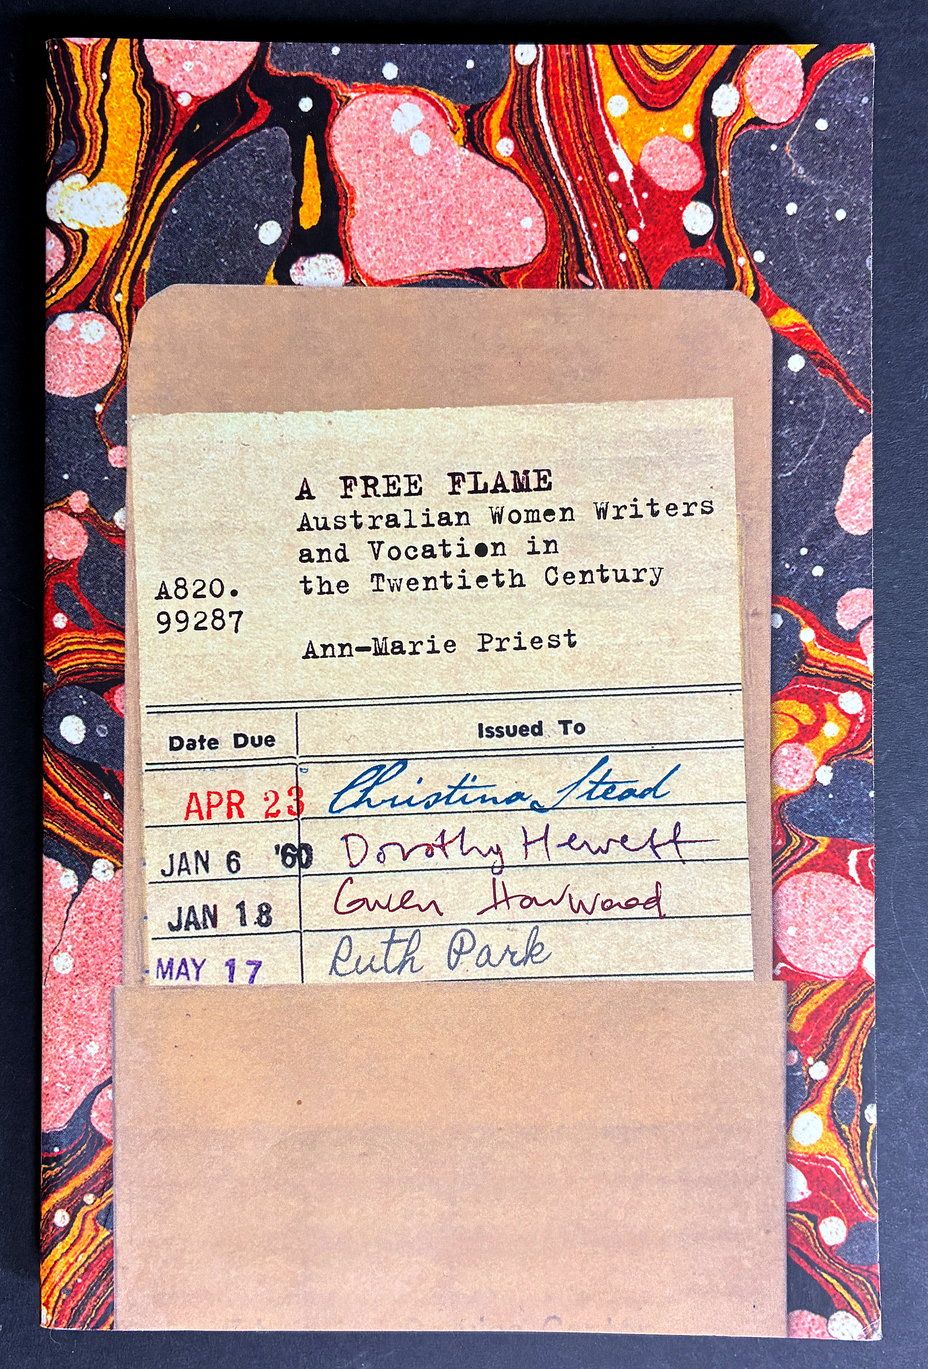 A FREE FLAME
Australian Women Writers
and Vocation in
the Twentieth Century
A820.
99287
Ann-Marie Priest
Date Due Issued To
APR 23 Christina Stead
JAN 6 '60 Dorothy Hewett
JAN 18 Gwen Harwood
MAY 17 Ruth Park